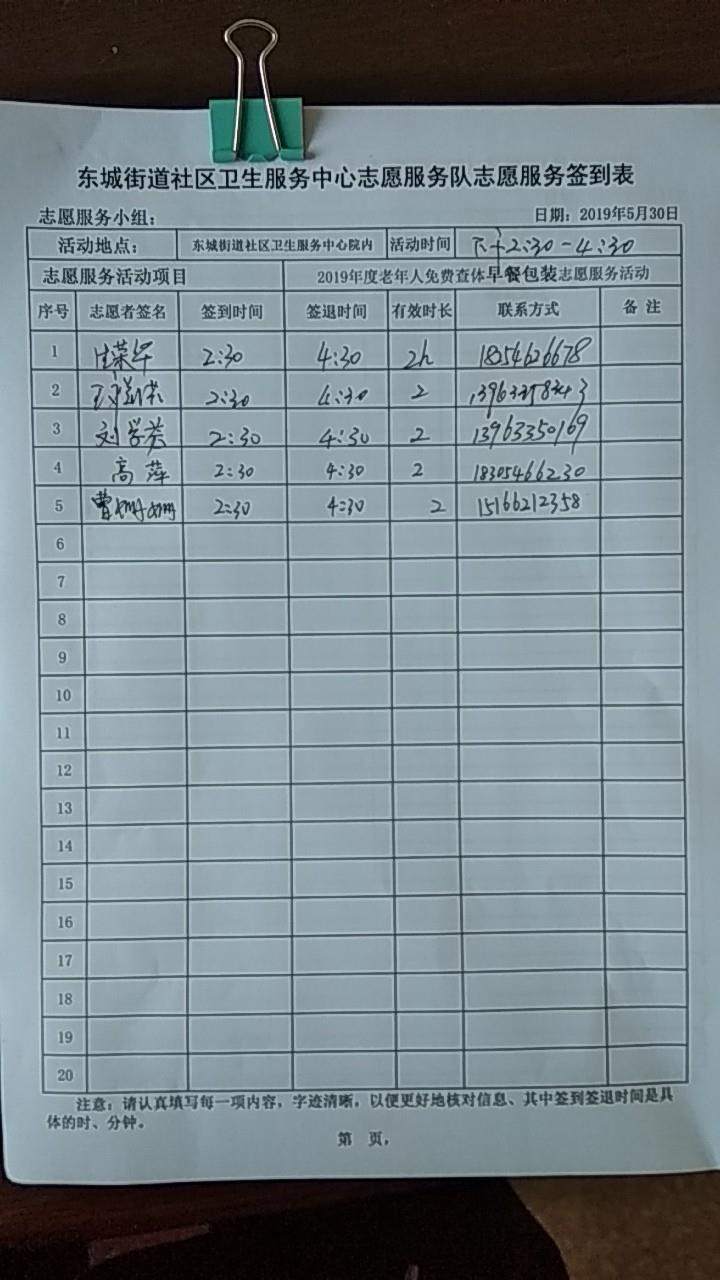 东城街道社区卫生服务中心志愿服务队志愿服务签到表
志愿服务小组： 日期：2019年5月30日
活动地点： 东城街道社区卫生服务中心院内 活动时间 下午2:30-4:30
志愿服务活动项目 2019年度老年人免费查体早餐包装志愿服务活动
序号 志愿者签名 签到时间 签退时间 有效时长 联系方式 备 注
1 2:30 4:30 2h 18254626678
2 2:30 4:30 2
3 刘学芳 2:30 4:30 2 13963350169
4 高萍 2:30 4:30 2 18305466230
5 曹姗姗 2:30 4:30 2 15166212358
6
7
8
9
10
11
12
13
14
15
16
17
18
19
20
注意：请认真填写每一项内容，字迹清晰，以便更好地核对信息、其中签到签退时间是具
体的时、分钟。
第 页，